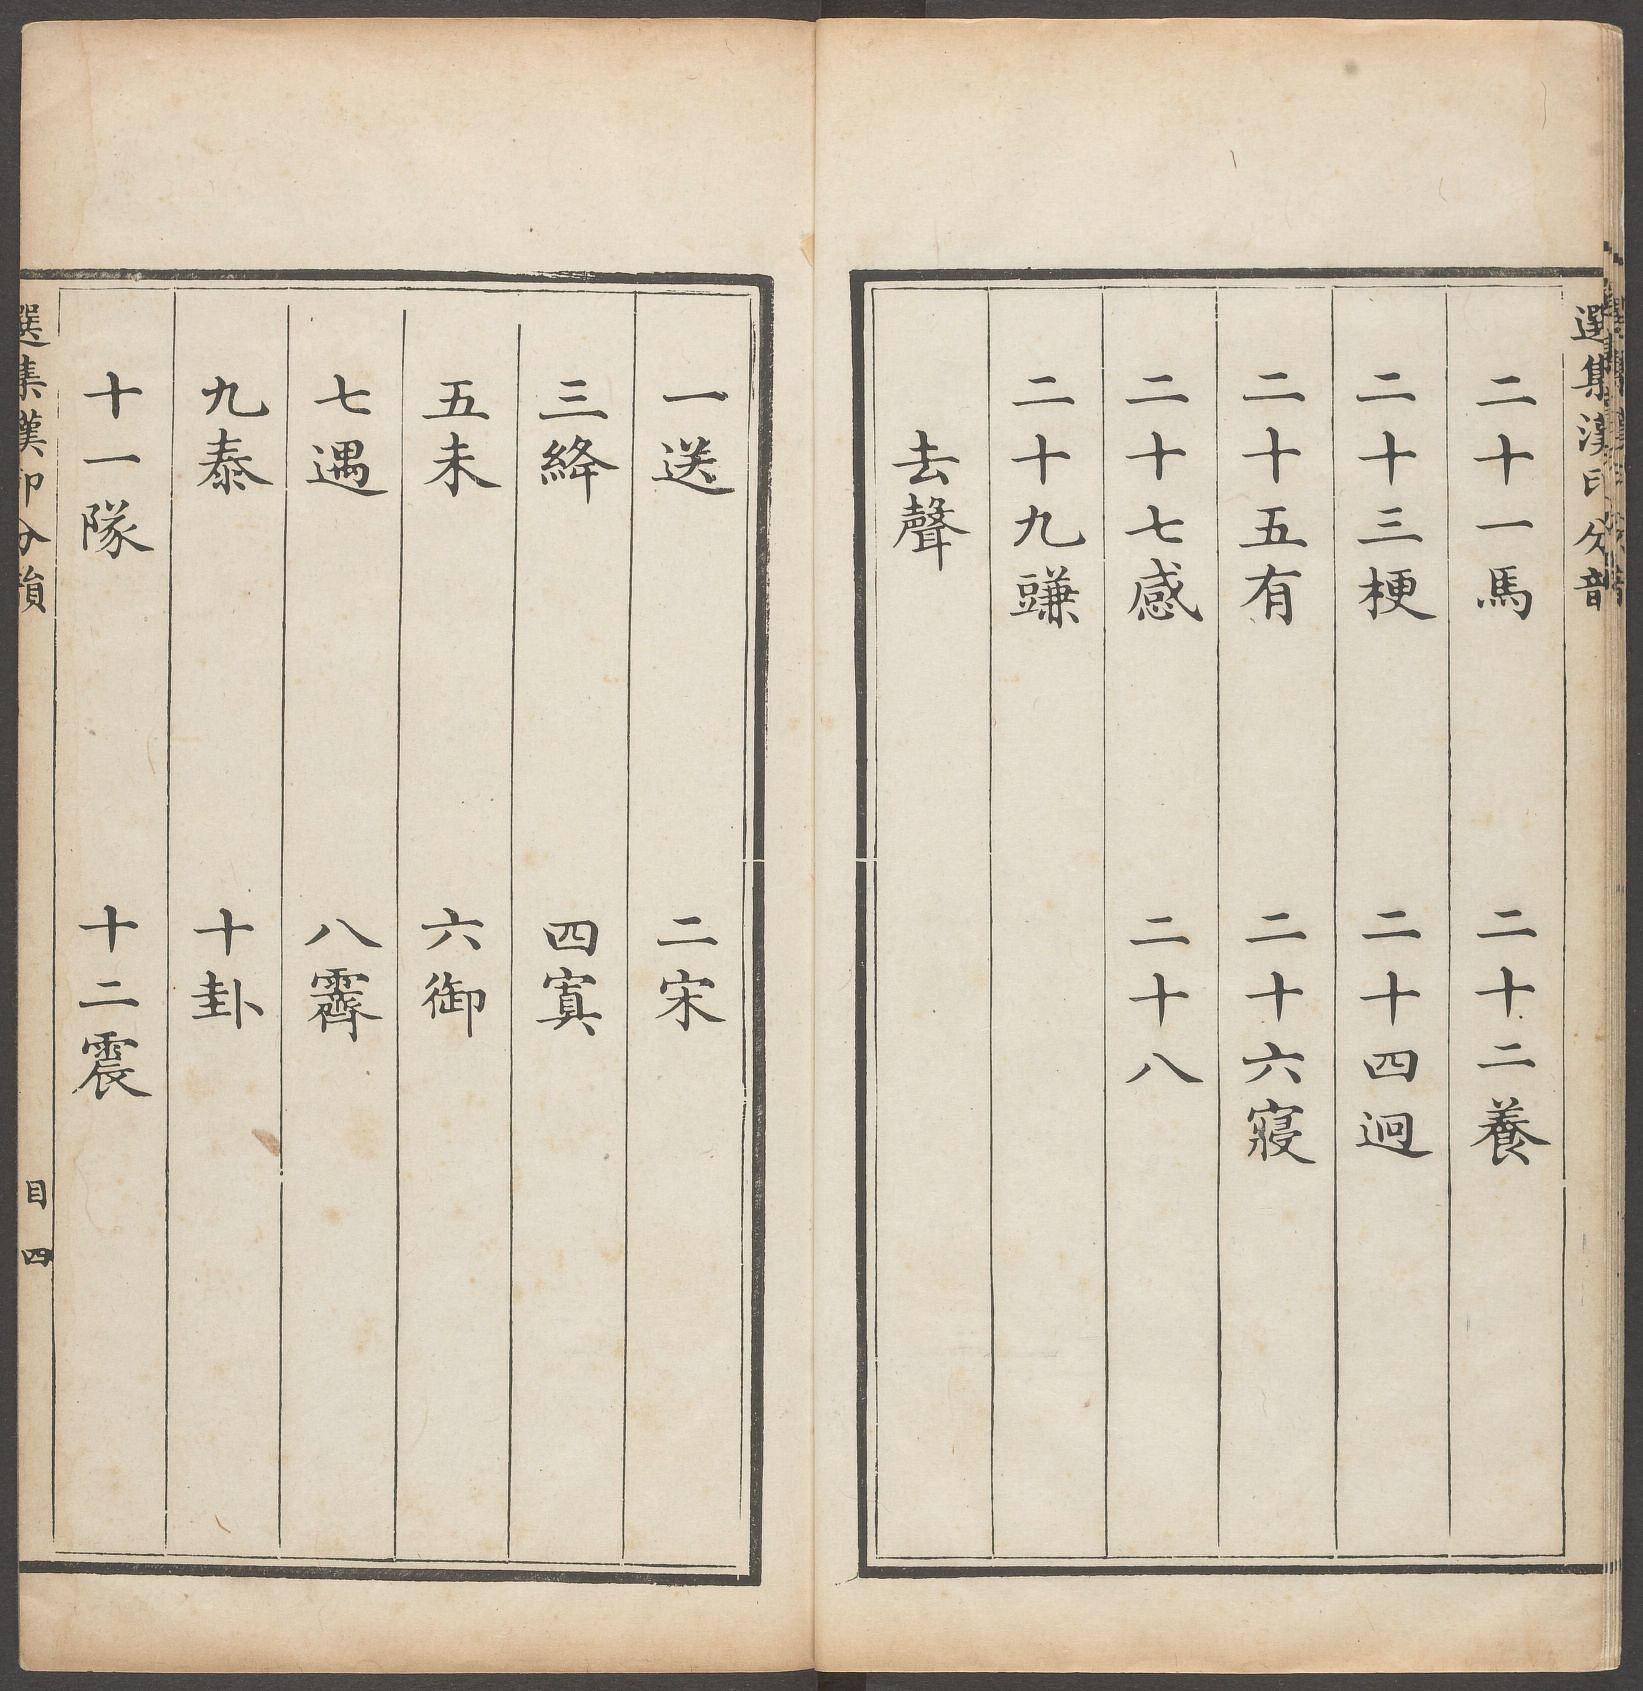 選集漢印分韻
二十一馬 二十二養
二十三梗 二十四迥
二十五有 二十六寑
二十七感 二十八
二十九豏
去聲
一送 二宋
三絳 四寘
五未 六御
七遇 八霽
九泰 十卦
十一隊 十二震
選集漢印分韻 目 四